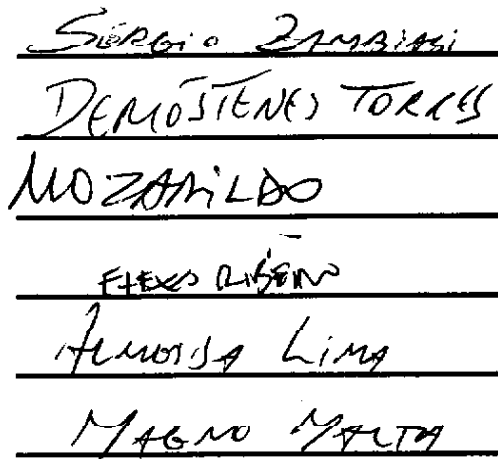 SÉRGIO ZAMBIASI
DEMÓSTENES TORRES
MOZARILDO
FLEXA RIBEIRO
ALMEIDA LIMA
MAGNO MALTA